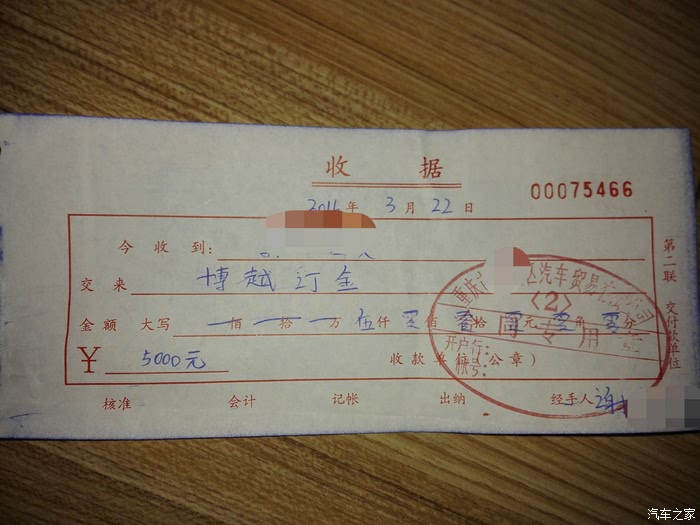 收 据
00075466
2016年 3月 22日
今 收 到:
交 来 博越订金
金 额 大写 一佰一拾一万伍仟零佰零拾零元零角零分
¥ 5000元 收 款 单 位 (公 章)
核准 会计 记帐 出纳 经手人
第二联 交付款单位
重庆 汽车贸易有限公司
〈2〉
合同专用章
开户行:
帐号:
汽车之家